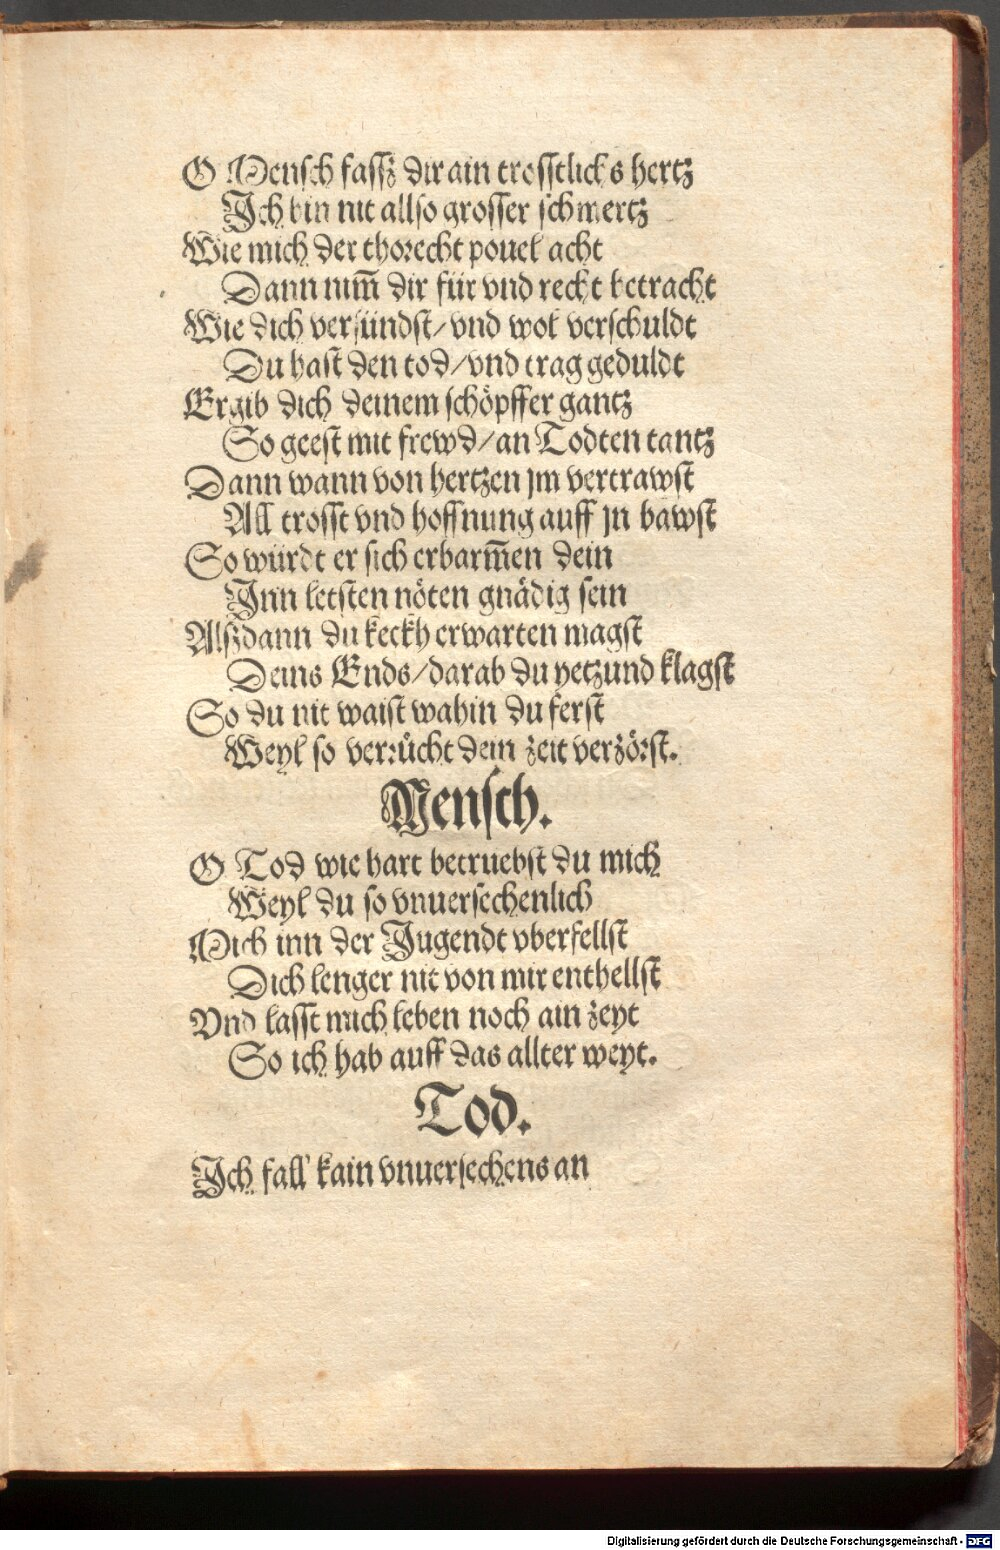 O Mensch fassz dir ain trosstlichs hertz
Ich bin nit allso grosser schmertz
Wie mich der thorecht pouel acht
Dann nim̄ dir für vnd recht betracht
Wie dich versündst/vnd wol verschuldt
Du hast den tod/vnd trag geduldt
Ergib dich deinem schöpffer gantz
So geest mit frewd/an Todten tantz
Dann wann von hertzen jm vertrawst
All trosst vnd hoffnung auff jn bawst
So würdt er sich erbarm̄en dein
Inn letsten nöten gnädig sein
Alszdann du keckh erwarten magst
Deins Ends/darab du yetzund klagst
So du nit waist wahin du ferst
Weyl so verrücht dein zeit verzörst.
Mensch.
O Tod wie hart betruebst du mich
Weyl du so vnuersechenlich
Mich inn der Jugendt vberfellst
Dich lenger nit von mir enthellst
Vnd lasst mich leben noch ain zeyt
So ich hab auff das allter weyt.
Tod.
Ich fall kain vnuersechens an
Digitalisierung gefördert durch die Deutsche Forschungsgemeinschaft - DFG